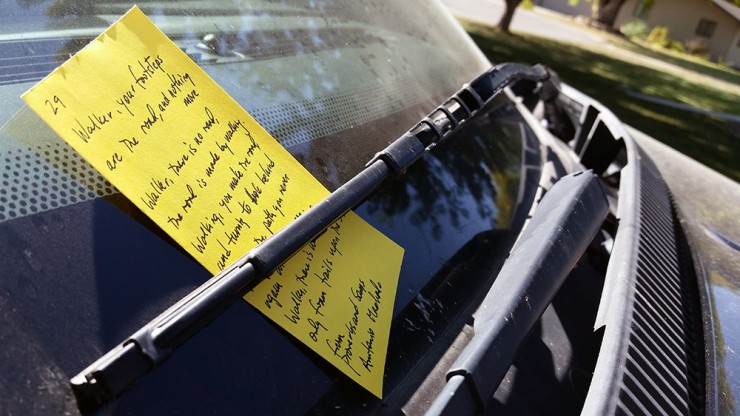 29
Walker, your footsteps
are the road, and nothing
more
Walker, there is no road,
the road is made by walking.
Walking, you make the road,
and turning to look behind
the path you never
again
Walker, there is
only foam trails upon the
from
Proverbs and Songs
Antonio Machado